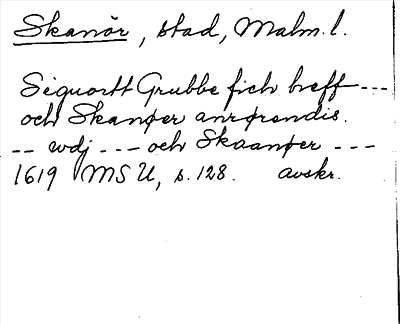 Skanör, stad, Malm. l.
Siguortt Grubbe fich breff ---
och Skanøer anrørendis.
-- wdj --- och Skaanøer ---
1619 MSU, s. 128. avskr.